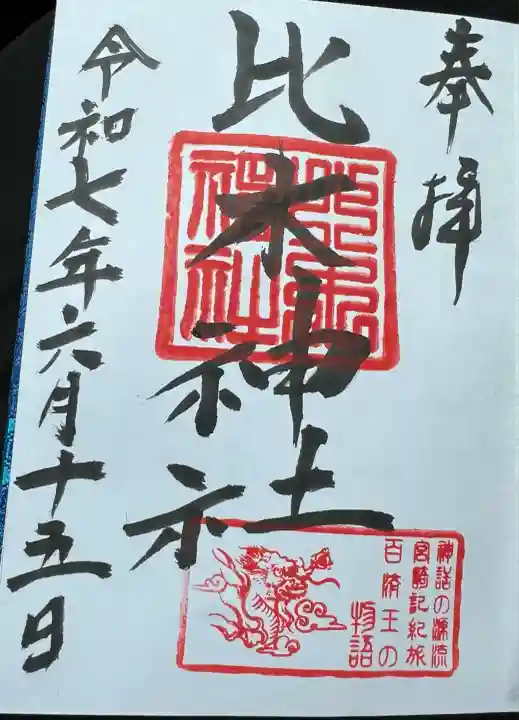 奉拝
比木神社
比木神社
令和七年六月十五日
神話の源流
宮崎記紀旅
百済王の
物語